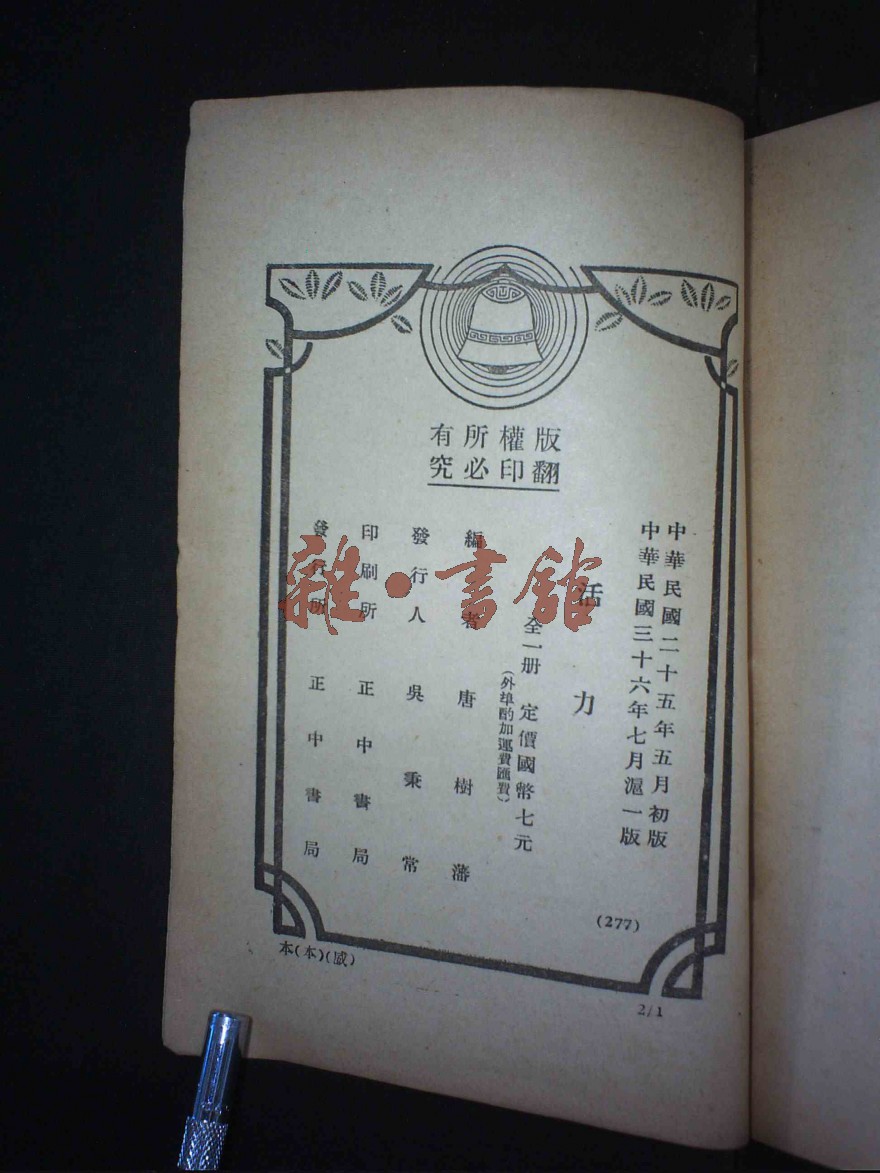 版權所有
翻印必究
中華民國二十五年五月初版
中華民國三十六年七月滬一版
活力
全一册 定價國幣七元
(外埠酌加運費匯費)
編著者 唐樹藩
發行人 吳秉常
印刷所 正中書局
發行所 正中書局
(277)
本(本)(感)
2/1
雜·書館